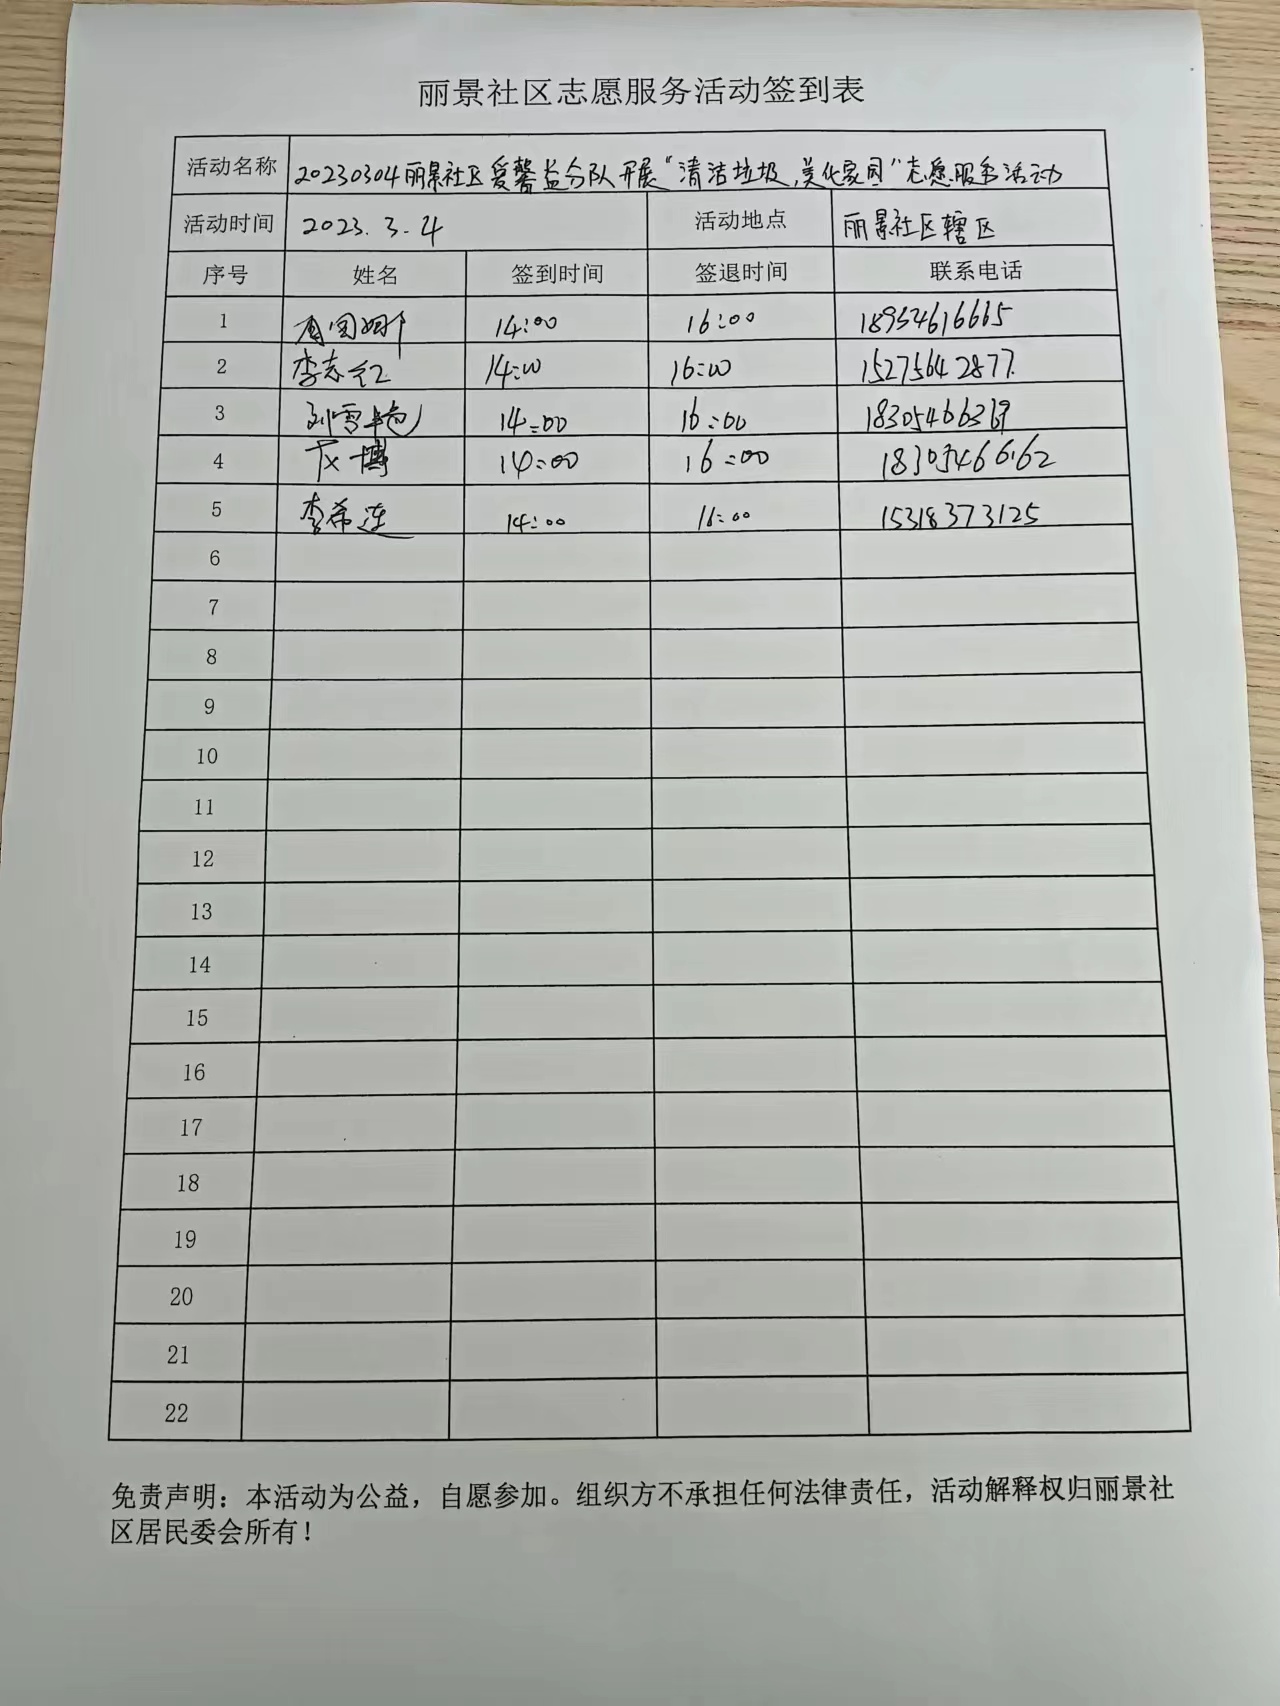 丽景社区志愿服务活动签到表
活动名称 20230304丽景社区爱馨益分队开展“清洁垃圾,美化家园”志愿服务活动
活动时间 2023.3.4 活动地点 丽景社区辖区
序号 姓名 签到时间 签退时间 联系电话
1 14:00 16:00 18954616665
2 李志红 14:00 16:00 15275642877
3 刘雪艳 14:00 16:00
4 14:00 16:00 18305466162
5 李希连 14:00 16:00 15318373125
6
7
8
9
10
11
12
13
14
15
16
17
18
19
20
21
22
免责声明：本活动为公益，自愿参加。组织方不承担任何法律责任，活动解释权归丽景社
区居民委会所有！